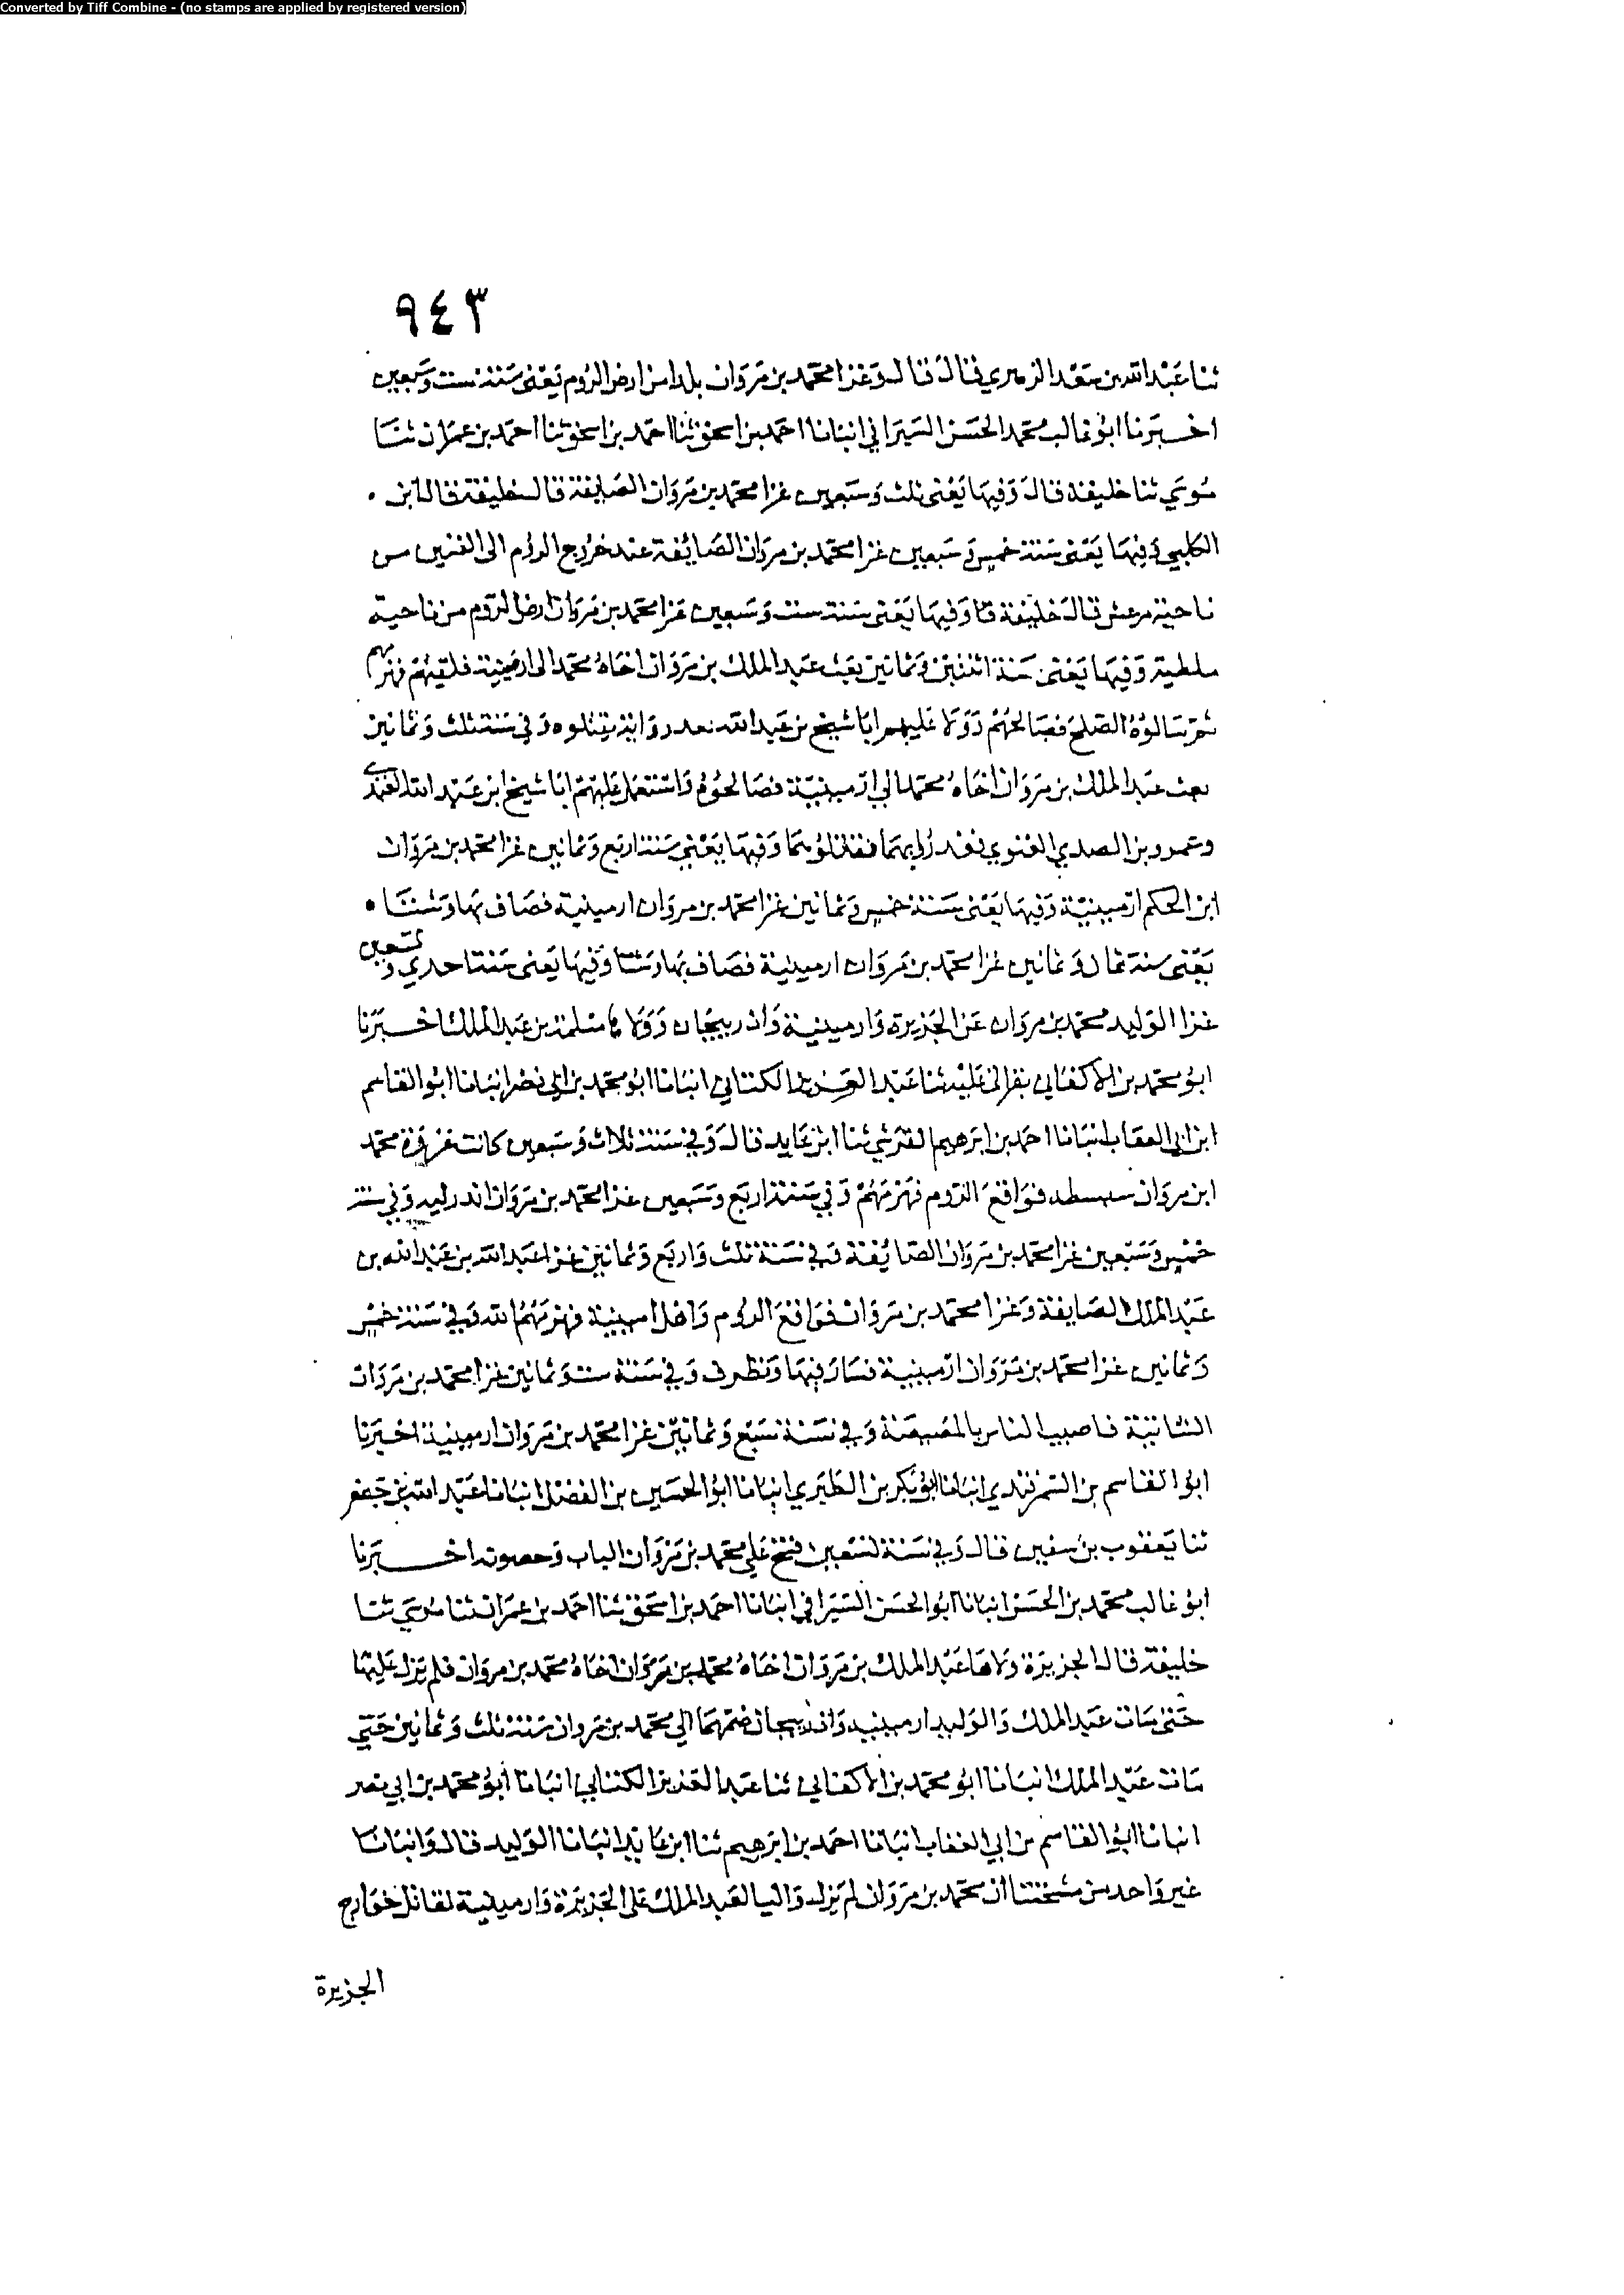 Converted by Tiff Combine - (no stamps are applied by registered version)
٩٤٣
ثنا عبد الله بن سعد الزهري قال قال وغزا محمد بن مروان بلدا من ارض الروم يعنى سنة ست وسبعين
اخبرنا ابو غالب محمد الحسن السيرافي انبانا احمد بن اسحق ثنا احمد بن اسحق ثنا احمد بن عمران ثنا
موسي ثنا خليفة قال وفيها يعنى ثلث وسبعين غزا محمد بن مروان الصايفة قال خليفة قال ابن
الكلبي وفيها يعنى سنة خمس وسبعين غزا محمد بن مروان الصائفة عند خروج الروم الى من
ناحية مرعش قال خليفة وفيها يعنى سنة ست وسبعين غزا محمد بن مروان ارض الروم من ناحية
ملطية وفيها يعنى سنة اثنتين وثمانين بعث عبد الملك بن مروان اخاه محمد الى ارمينية فلقيهم فهزمهم
ثم سالوه الصلح فصالحهم وولا عليهم ابا شيخ بن عبد الله وفي سنة ثلث وثمانين
بعث عبد الملك بن مروان اخاه محمد الي ارمينية فصالحوه واستعمل عليهم ابا شيخ ابن عبد الله
وعمرو بن الصدي الغنوي وفيها يعني سنة اربع وثمانين غزا محمد بن مروان
ابن الحكم ارمينية وفيها يعنى سنة خمس وثمانين غزا محمد بن مروان ارمينية فصاف بها وشتا
يعنى سنة ثمان وثمانين غزا محمد بن مروان ارمينية فصاف بها وشتا وفيها يعنى سنة احدي وتسعين
غزا الوليد محمد بن مروان عن الجزيرة وارمينية واذربيجان وولاها مسلمة بن عبد الملك اخبرنا
ابو محمد بن الاكفاني بقراتى عليه ثنا عبد العزيز الكتاني انبانا ابو محمد بن ابى نصر انبانا ابو القاسم
ابن ابى العقاب انبانا احمد بن ابرهيم القرشي ثنا ابن عايد قال وفي سنة ثلاث وسبعين كانت غزوة محمد
ابن مروان فواقع الروم فهزمهم وفي سنة اربع وسبعين غزا محمد بن مروان وفي سنة
خمس وسبعين غزا محمد بن مروان الصائفة وفي سنة ثلث واربع وثمانين غزا عبد الله بن عبد الله بن
عبد الملك الصايفة وغزا محمد بن مروان فواقع الروم واهل فهزمهم الله وفي سنة خمس
وثمانين غزا محمد بن مروان ارمينية فسار فيها وفي سنة ست وثمانين غزا محمد بن مروان
الثانية فاصيب الناس بالمصيصة وفي سنة سبع وثمانين غزا محمد بن مروان ارمينية اخبرنا
ابو القاسم بن السمرقندي انبانا ابو بكر بن الطبري انبانا ابو الحسين بن الفضل انبانا عبد الله بن جعفر
ثنا يعقوب بن سفين قال وفي سنة تسعين فتح علي محمد بن مروان الباب وحصونه اخبرنا
ابو غالب محمد بن الحسن انبانا ابو الحسن السيرافي انبانا احمد بن اسحق ثنا احمد بن عمران ثنا موسي ثنا
خليفة قال الجزيرة ولاها عبد الملك بن مروان اخاه محمد بن مروان اخاه محمد بن مروان فلم يزل عليها
حتى مات عبد الملك والوليد ارمينيه ضمهما الي محمد بن مروان سنة ثلث وثمانين حتي
مات عبد الملك انبانا ابو محمد بن الاكفاني ثنا عبد العزيز الكتاني انبانا ابو محمد بن ابي نصر
انبانا ابو القاسم بن ابي العقاب انبانا احمد بن ابرهيم ثنا ابن عايد انبانا الوليد قال وانبانا
غير واحد من مشختنا ان محمد بن مروان لم يزل واليا لعبد الملك على الجزيرة وارمينية لقاتل خوارج
الجزيرة